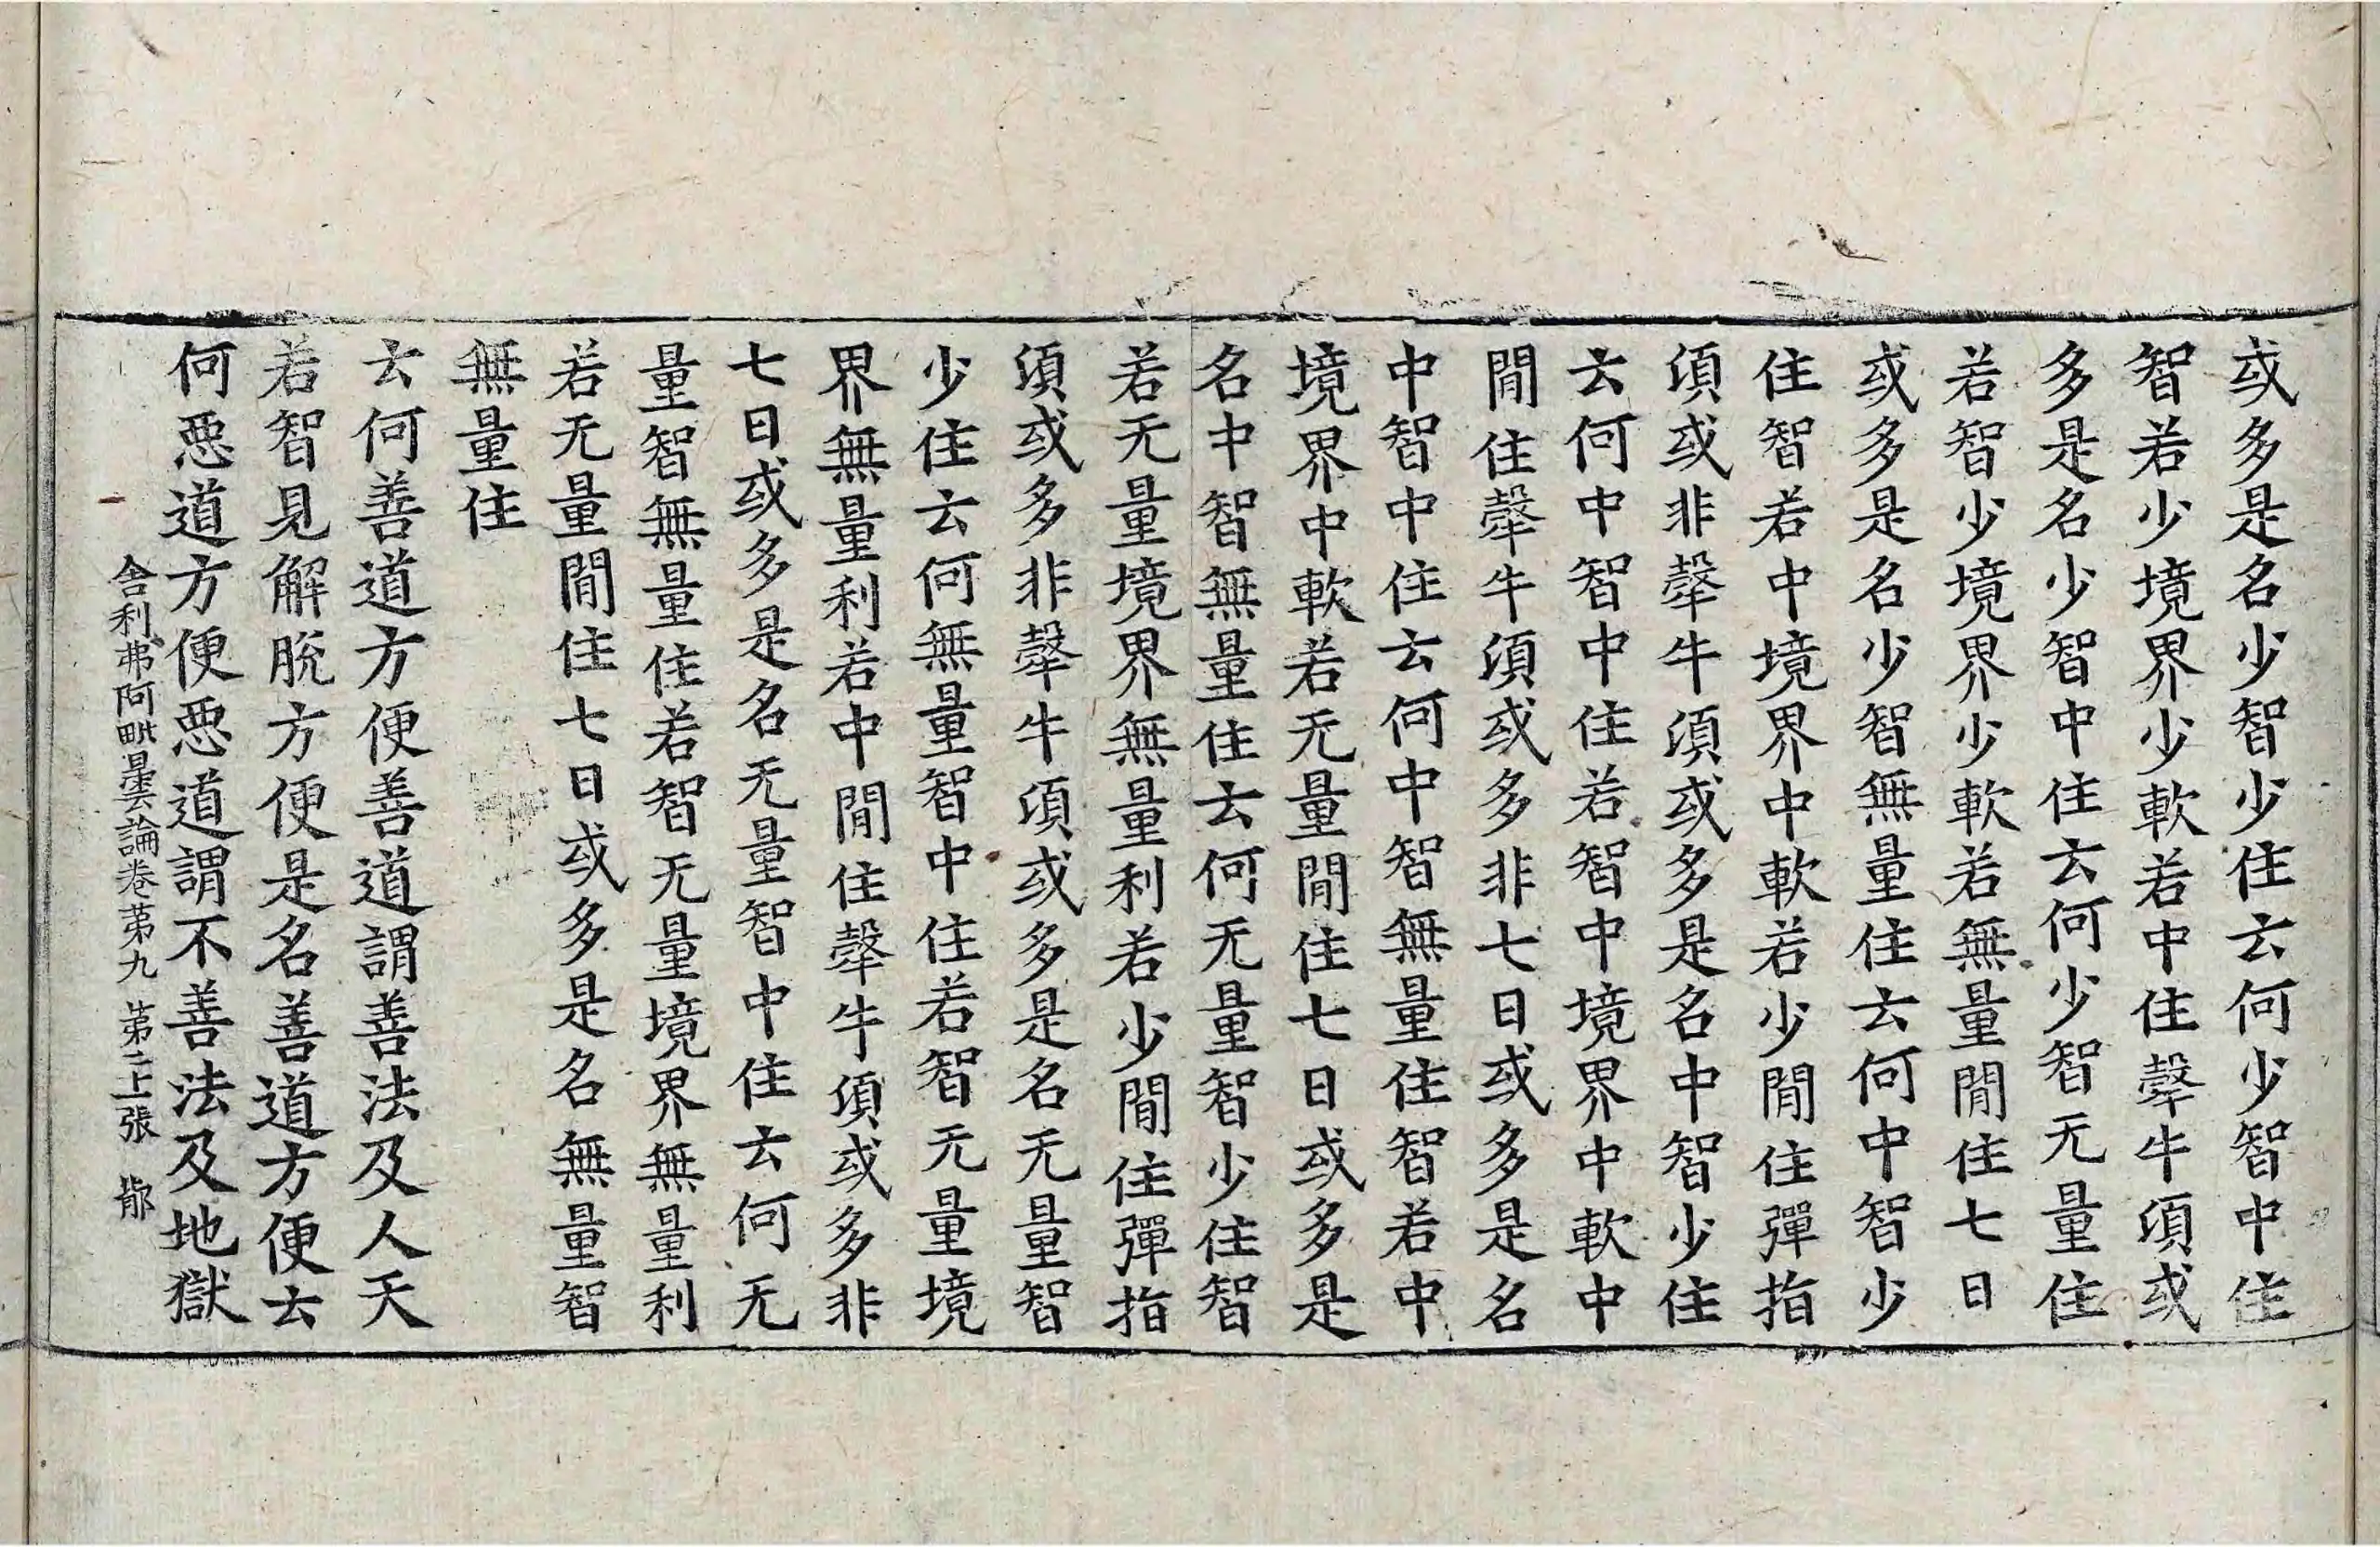 或多是名少智少住云何少智中住
智若少境界少軟若中住㲉牛湏或
多是名少智中住云何少智无量住
若智少境界少軟若無量閒住七日
或多是名少智無量住云何中智少
住智若中境界中軟若少閒住彈指
湏或非㲉牛湏或多是名中智少住
云何中智中住若智中境界中軟中
閒住㲉牛湏或多非七日或多是名
中智中住云何中智無量住智若中
境界中軟若无量閒住七日或多是
名中智無量住云何无量智少住智
若无量境界無量利若少閒住彈指
湏或多非㲉牛湏或多是名无量智
少住云何無量智中住若智无量境
界無量利若中閒住㲉牛湏或多非
七日或多是名无量智中住云何无
量智無量住若智无量境界無量利
若无量閒住七日或多是名無量智
無量住
云何善道方便善道謂善法及人天
若智見解脫方便是名善道方便云
何惡道方便惡道謂不善法及地獄
舍利弗阿毗曇論卷苐九 苐二上張